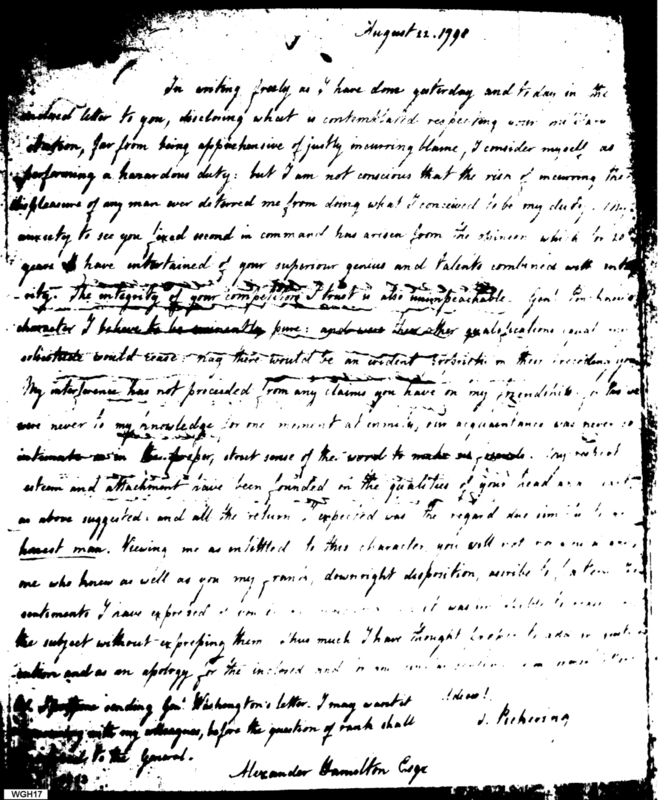 August 22. 1798
In writing freely as I have done yesterday and today in the
inclosed letter to you, disclosing what is contemplated respecting your military
station, far from being apprehensive of justly incurring blame, I consider myself as
performing a hazardous duty: but I am not conscious that the risk of incurring the
displeasure of any man ever deterred me from doing what I conceived to be my duty. My
anxiety to see you fixed second in command has arisen from the opinion which for 20
years I have entertained of your superiour genius and talents combined with
The integrity of your competitors I trust is also unimpeachable. Genl
character I believe to be eminently pure: and were other qualifications equal my
solicitude would cease: nay there would be an evident in their preceding you
My interference has not proceeded from any claims you have on my friendship; for tho we
were never to my knowledge for one moment at enmity, our acquaintance was never so
intimate as in the proper, strict sense of the word to make us friends. My respect
esteem and attachment have been founded on the qualities of your head and
as above suggested: and all the return I expected was the regard due simply to an
honest man. Viewing me as entitled to this character, you will not
one who knew as well as you my frank, downright disposition, ascribe to flattery the
sentiments I have expressed
the subject without expressing them Thus much I have thought proper to add in
and as an apology for the inclosed
sending Genl Washington's letter. I may want it
with my colleagues, before the question of rank shall
to the General.
Adieu!
T. Pickering
Alexander Hamilton Esqr
WGH17